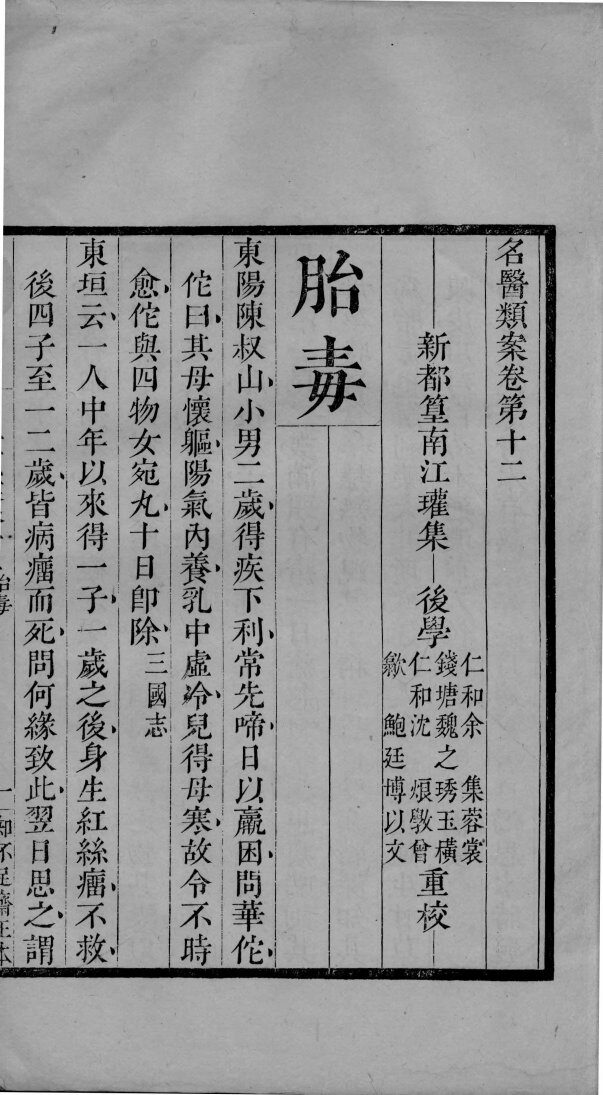 名醫類案卷第十二
新都篁南江瓘集 後學
仁和余 集蓉裳
錢塘魏之琇玉橫
仁和沈 烺敦曾
歙 鮑廷博以文
重校
胎毒
東陽陳叔山小男二歲得疾下利常先啼日以羸困問華佗
佗曰其母懷軀陽氣內養乳中虛冷兒得母寒故令不時
愈佗與四物女宛丸十日卽除三國志
東垣云一人中年以來得一子一歲之後身生紅絲瘤不救
後四子至一二歲皆病瘤而死問何緣致此翌日思之謂
胎毒
一
知不足齋正本